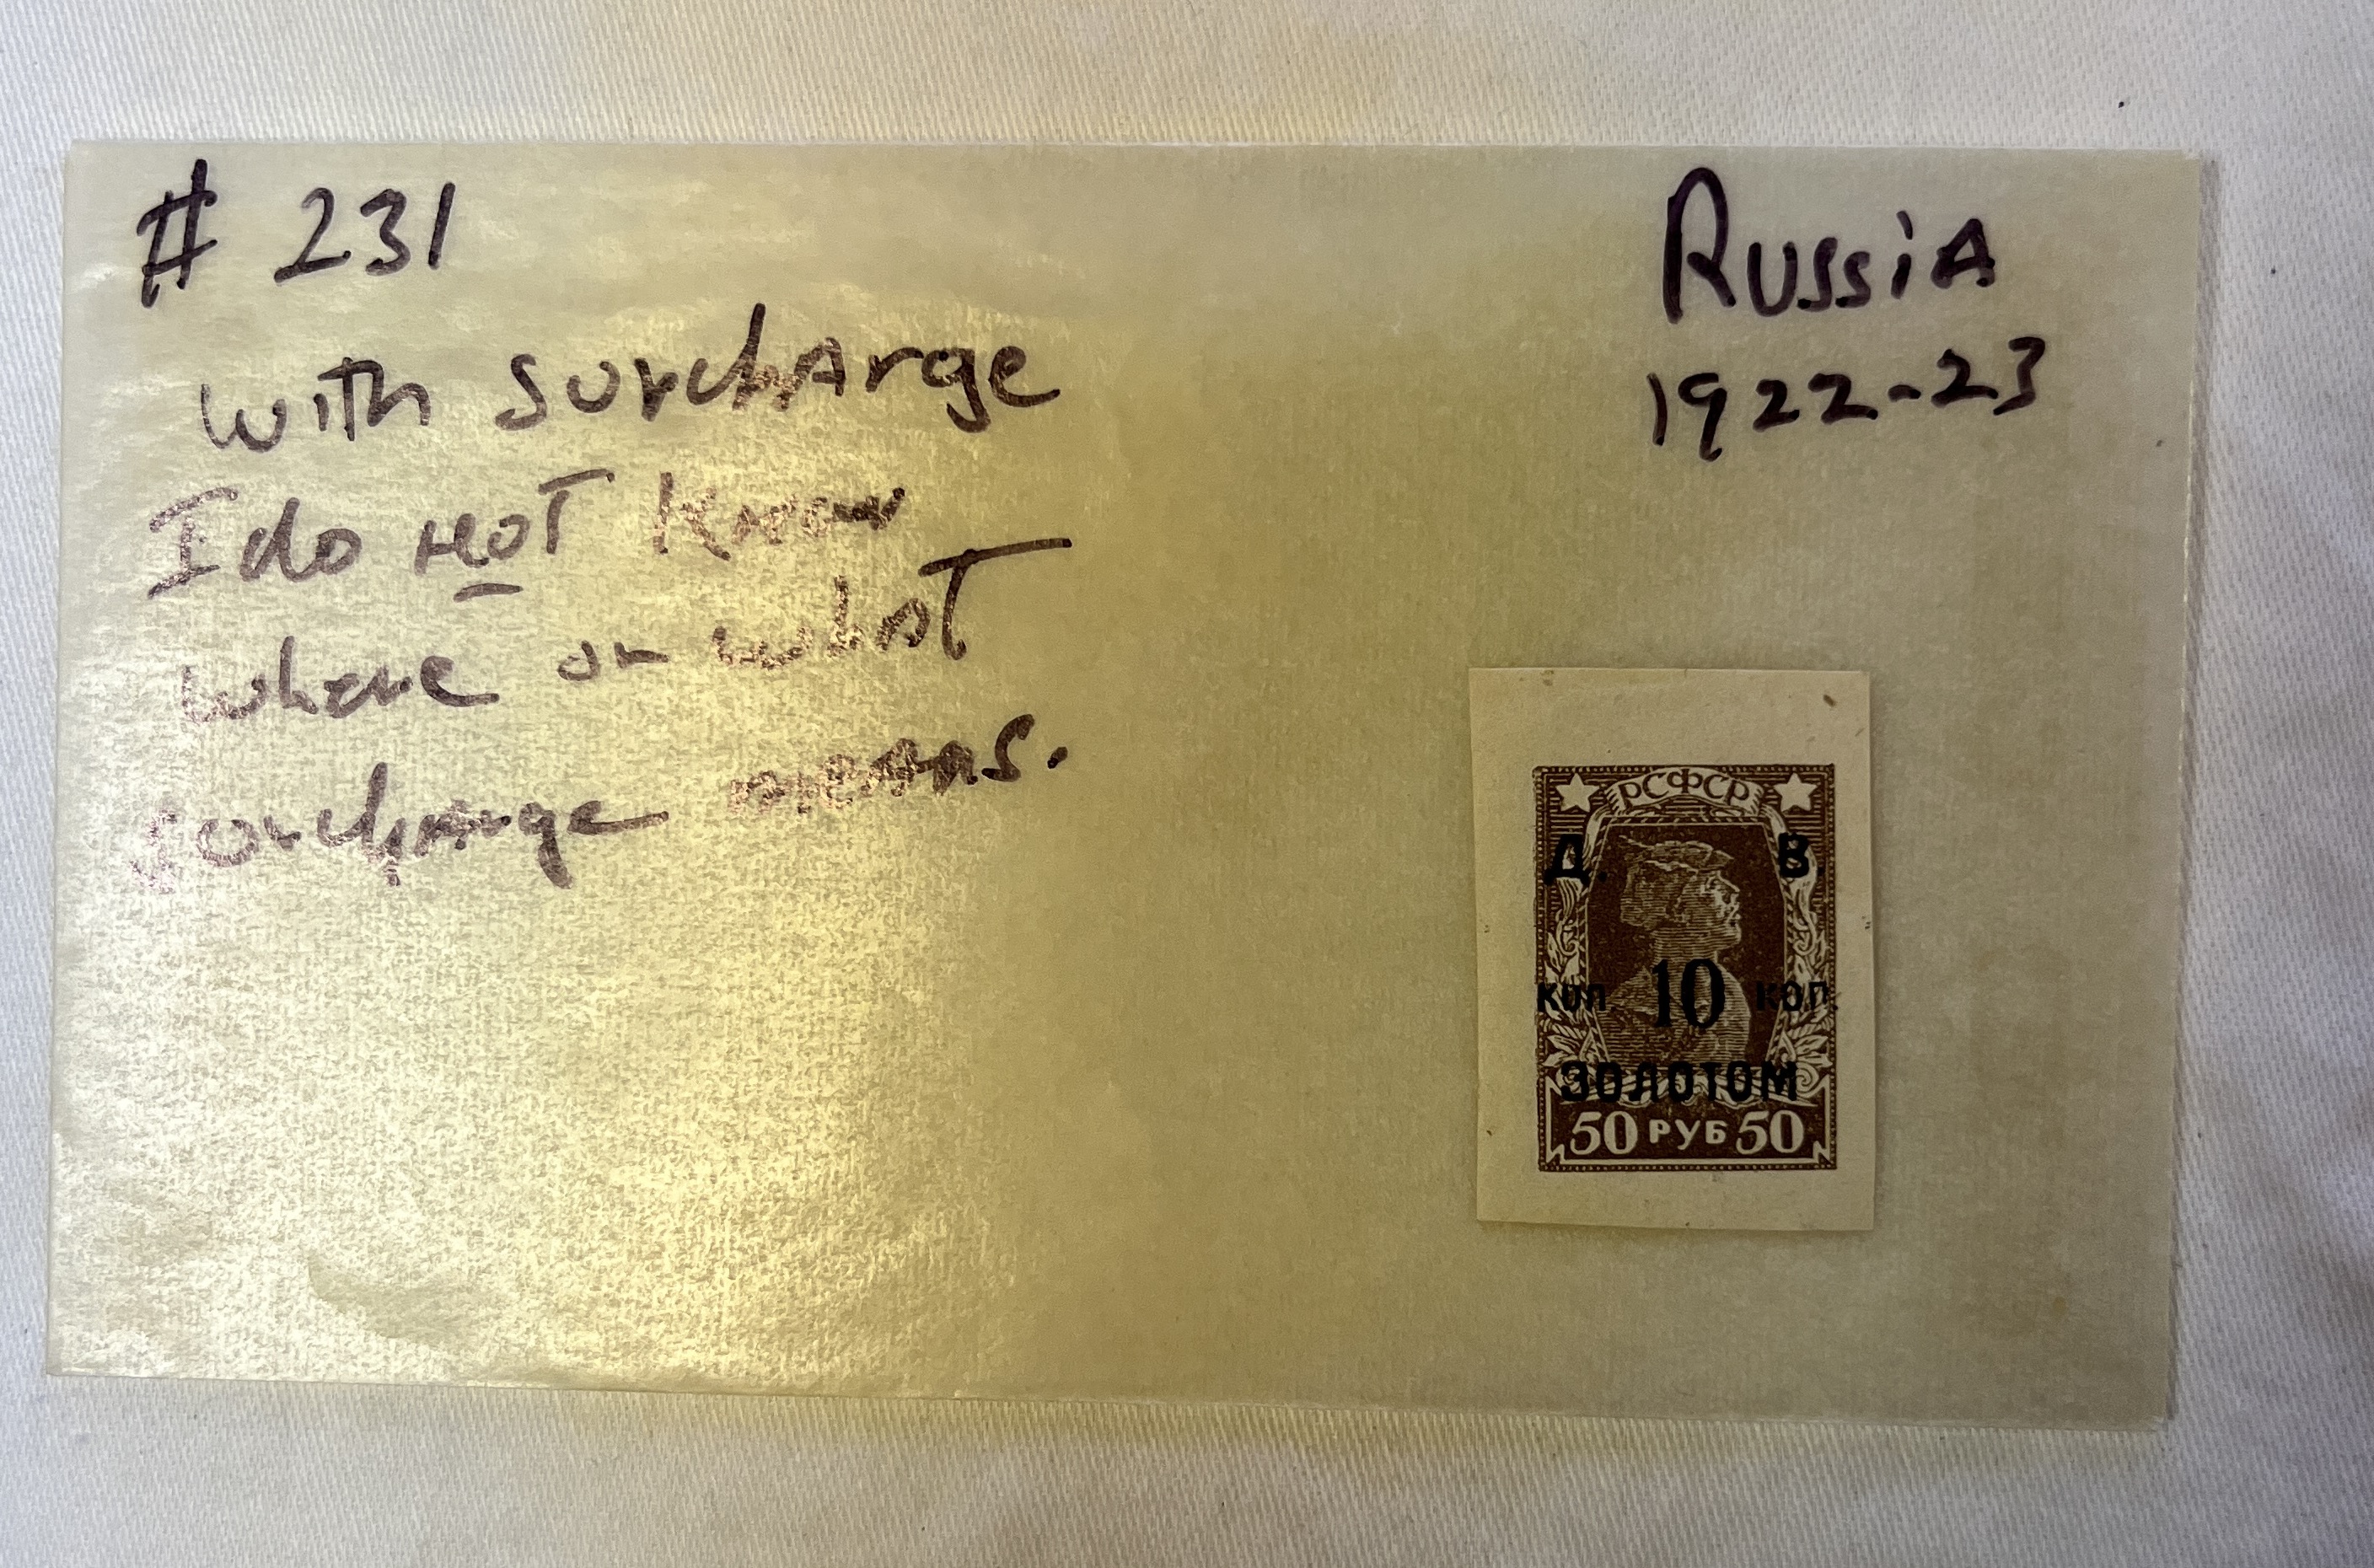 # 231
Russia
1922-23
with surcharge
I do not know
where or what
surcharge means.
РСФСР
Д. В.
коп. 10 коп.
ЗОЛОТОМ
50 РУБ 50